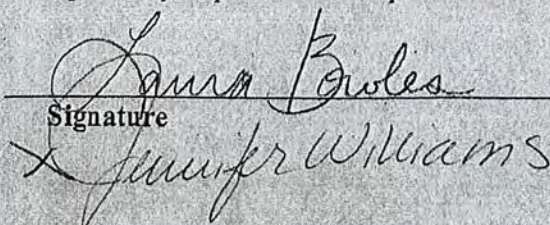 Laura Bowles
Signature
X Jennifer Williams